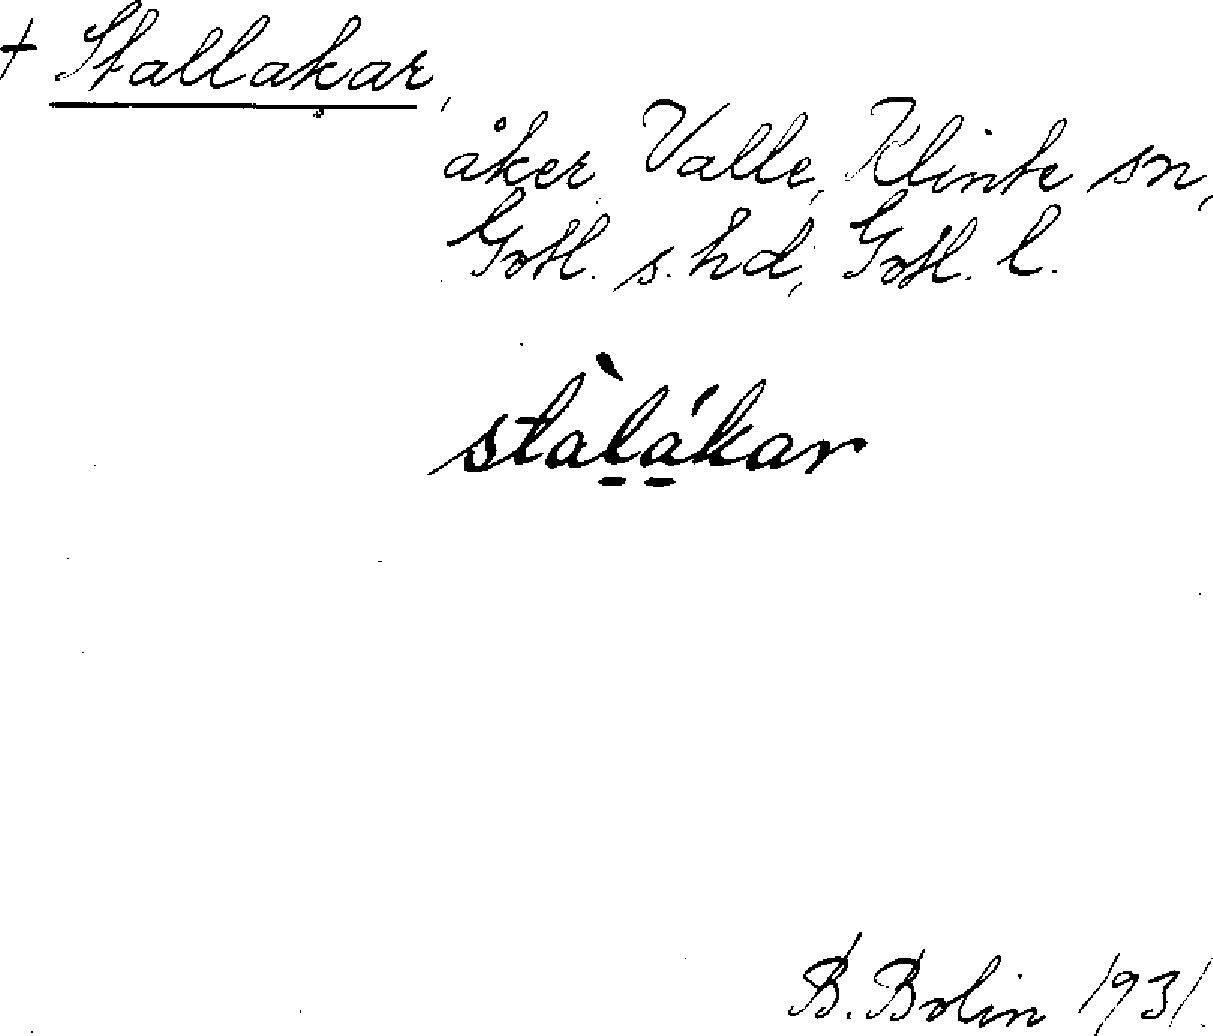 † Stallakar,
åker, Valle, Klinte sn,
Gotl. s. hd, Gotl. l.
stàlákar
B. Bolin 1931.